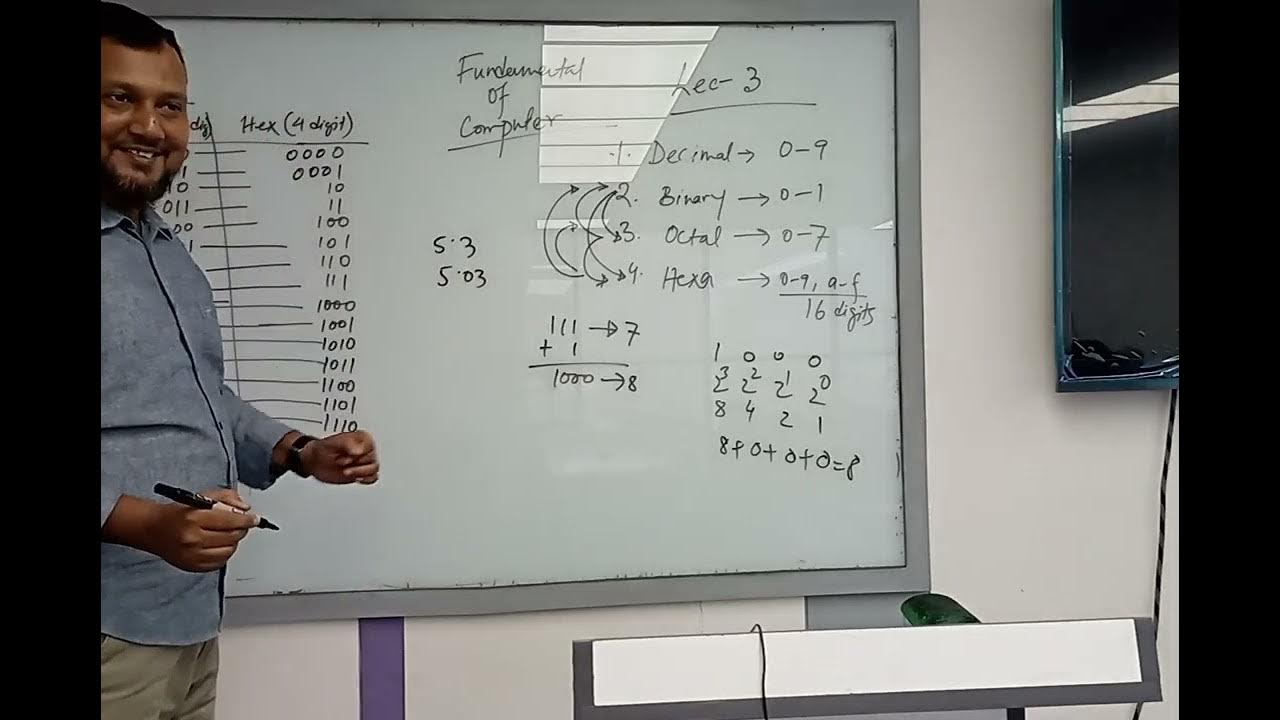 Hex (4 digit)
0000
0001
10
11
011
100
101
110
111
1000
1001
1010
1011
1100
1101
1110
Fundamental
Of
Computer
5.3
5.03
111 → 7
+ 1
1000 → 8
Lec-3
1. Decimal → 0-9
2. Binary → 0-1
3. Octal → 0-7
4. Hexa → 0-9, a-f
16 digits
1 0 0 0
2³ 2² 2¹ 2⁰
8 4 2 1
8+0+0+0=8